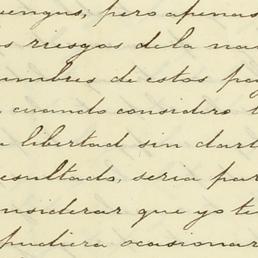 vengas; pero apenas
os riesgos de la na
umbres de estos pa
cuando considero l
a libertad sin dart
esultado, seria par
onsiderar que yo te
pudiera ocasionar